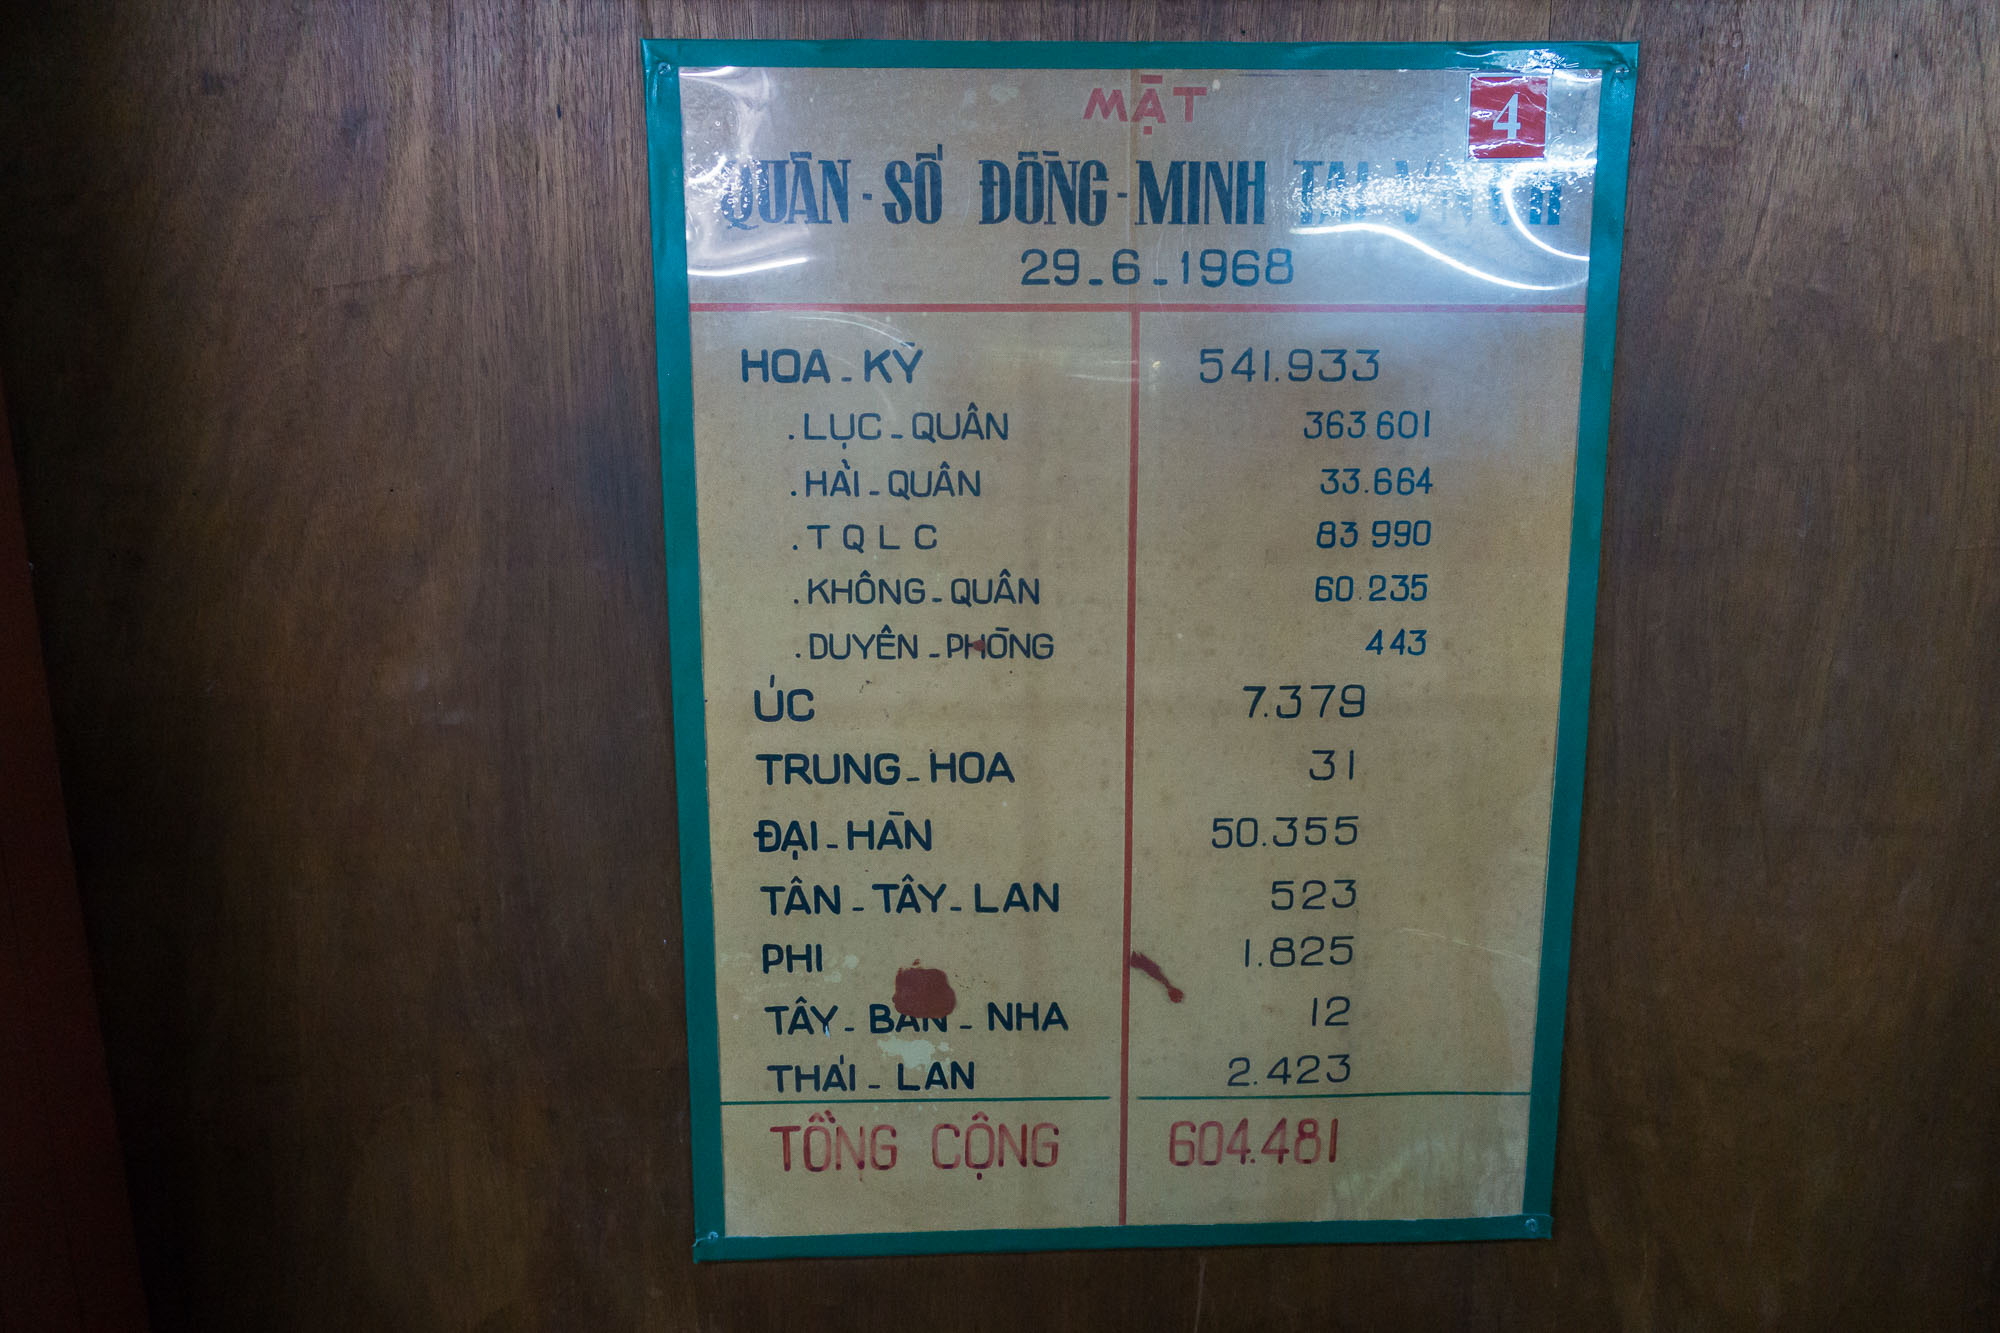 MẬT
4
QUÂN-SỐ ĐỒNG-MINH TẠI V.N CH
29-6-1968
HOA-KỲ 541.933
.LỤC-QUÂN 363.601
.HẢI-QUÂN 33.664
.TQLC 83 990
.KHÔNG-QUÂN 60.235
.DUYÊN-PHÒNG 443
ÚC 7.379
TRUNG-HOA 31
ĐẠI-HÀN 50.355
TÂN-TÂY-LAN 523
PHI 1.825
TÂY-BAN-NHA 12
THÁI-LAN 2.423
TỔNG CỘNG 604.481